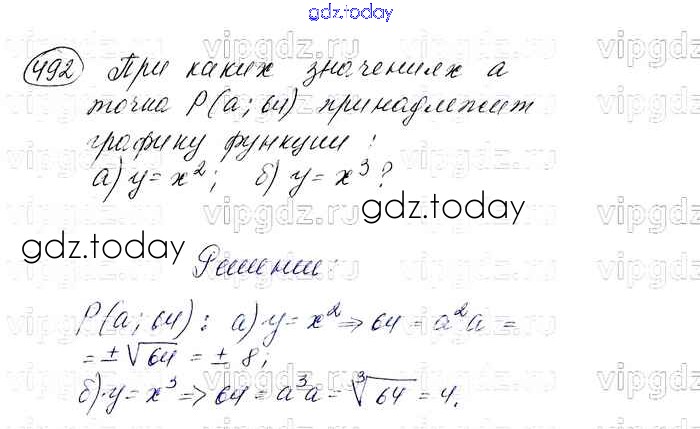 gdz.today
492 При каких значениях а
точка P(a; 64) принадлежит
графику функции:
а) y = x²; б) y = x³?
gdz.today
gdz.today
Решение:
P(a; 64): а) y = x² => 64 = a² a =
= ±√64 = ± 8;
б) y = x³ => 64 = a³ a = ∛64 = 4.
vipgdz.ru